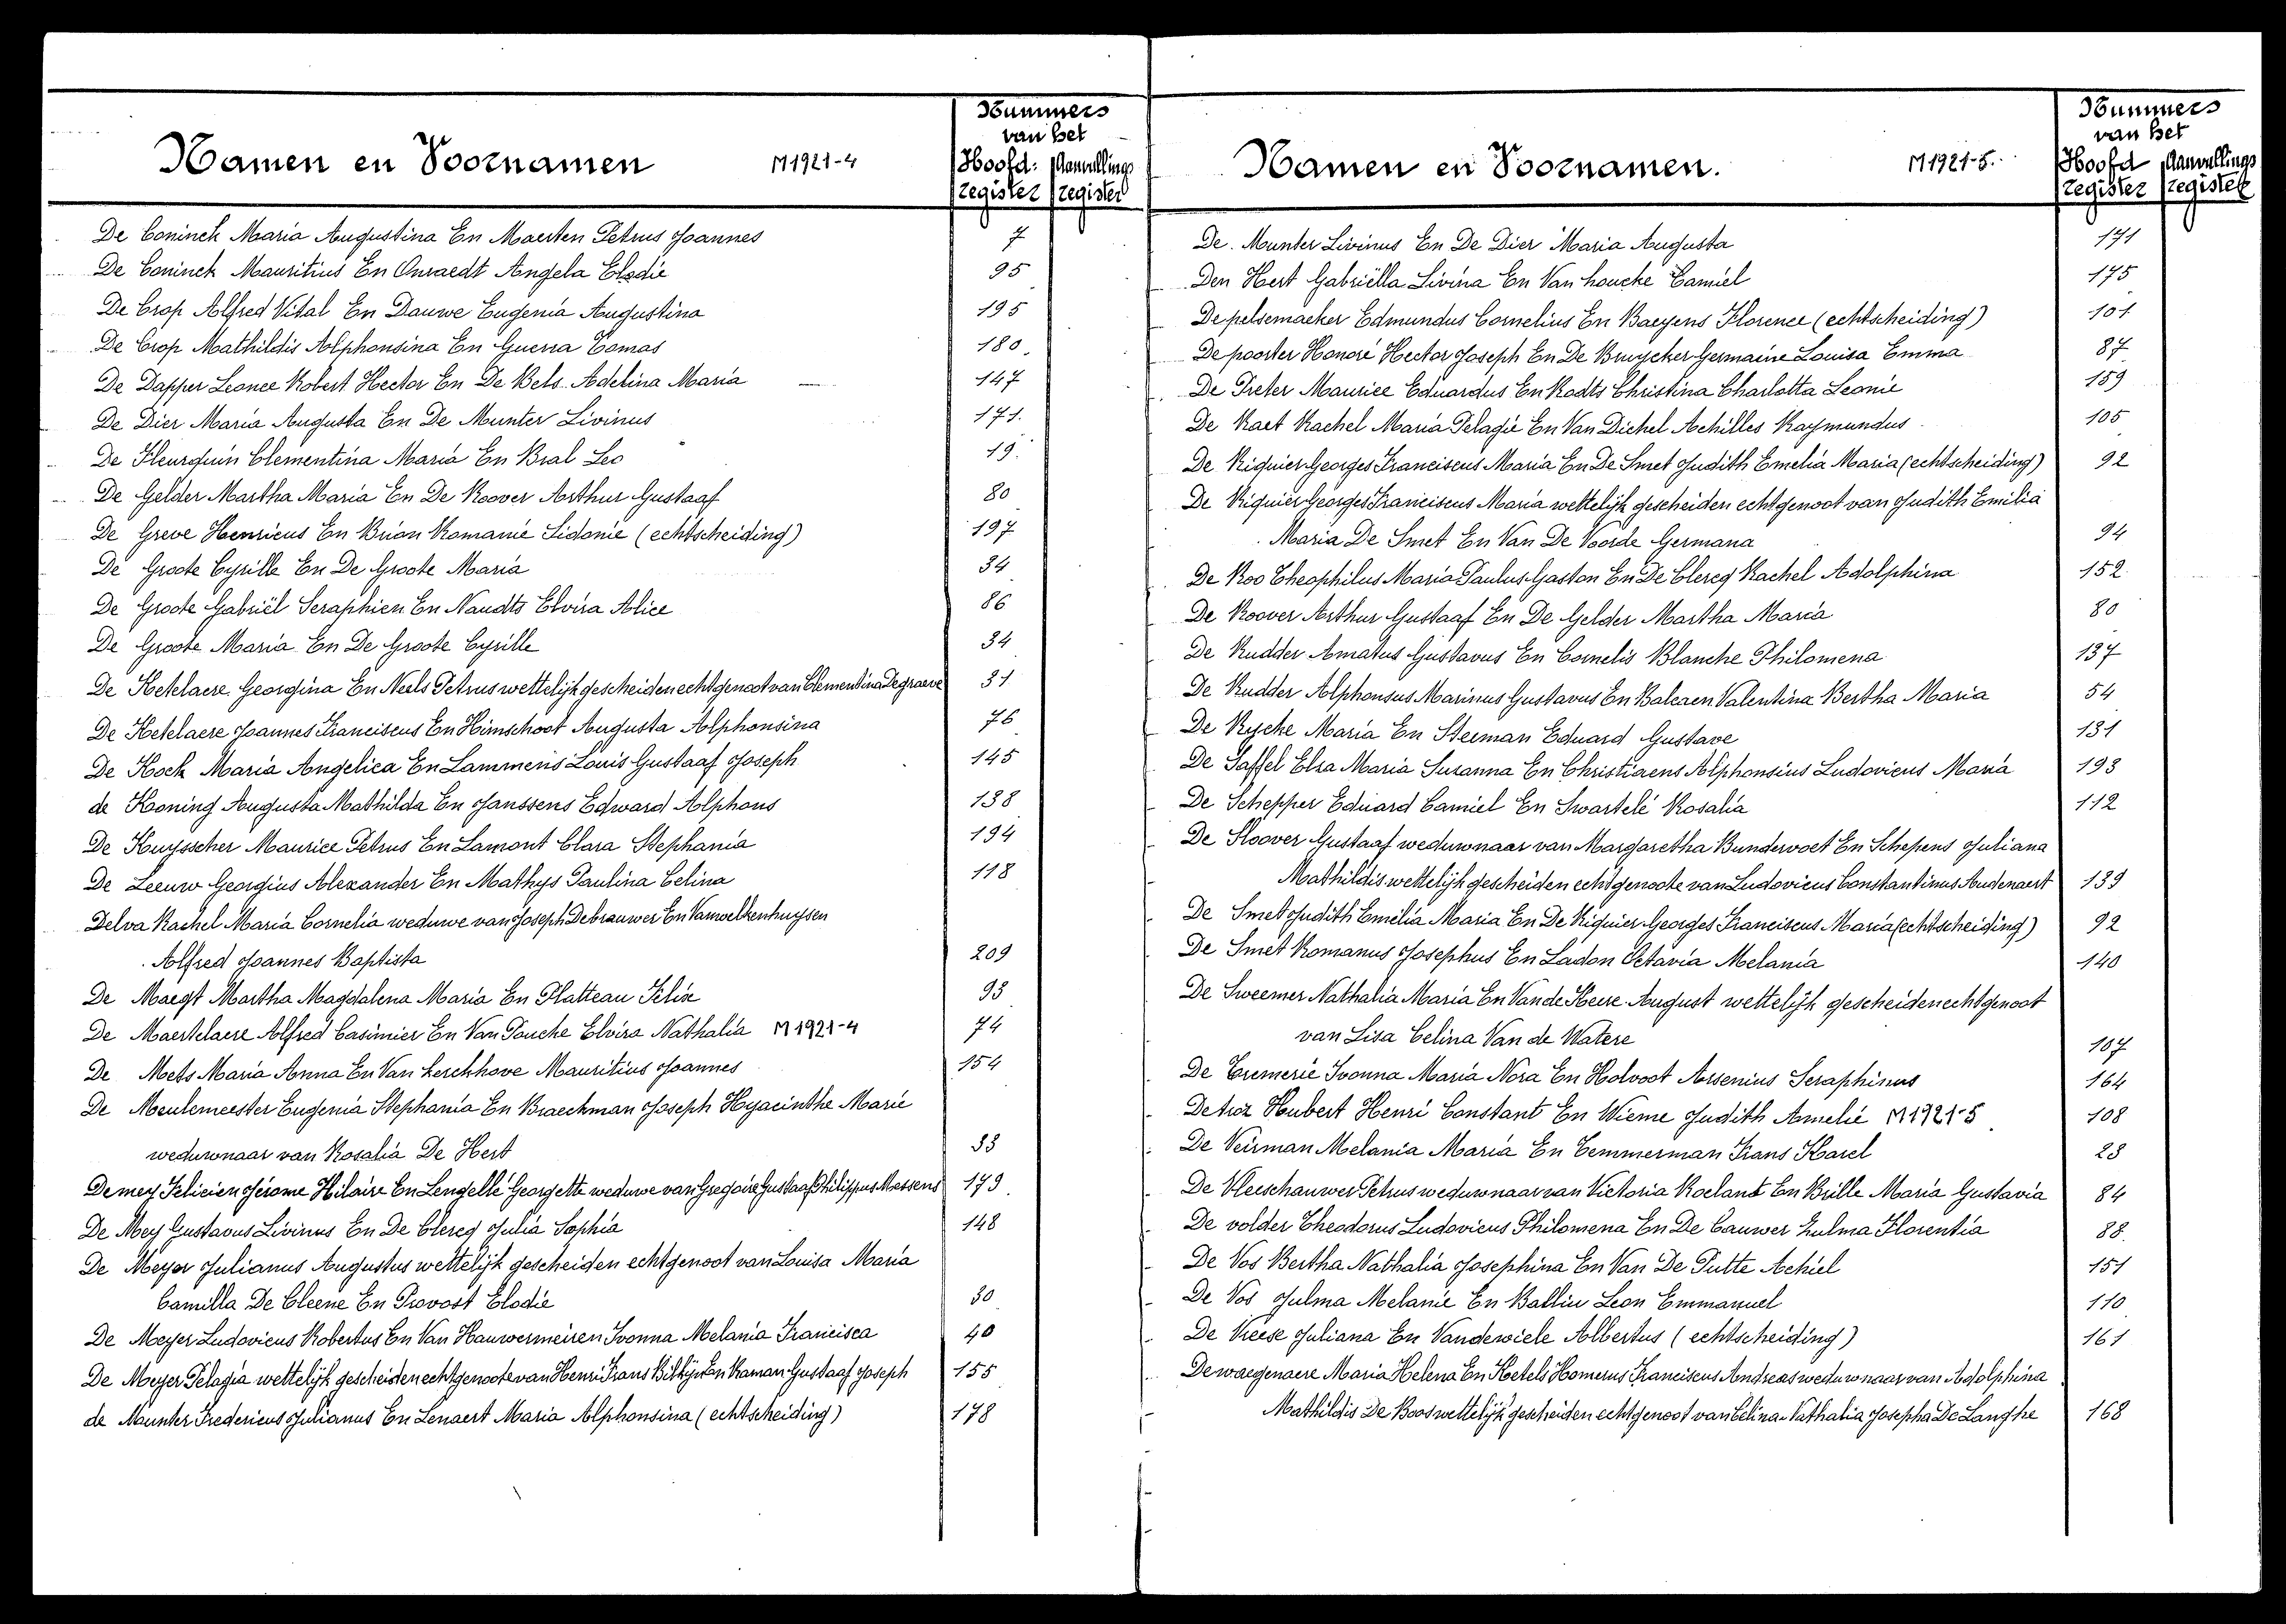 Nummers
van het
Namen en Voornamen M1921-4 Hoofd: Aanvullings
register register
De Coninck Maria Augustina En Maerten Petrus Joannes 7
De Coninck Mauritius En Onraedt Angela Elodie 95
De Crop Alfred Vital En Dauwe Eugenia Augustina 195
De Crop Mathildis Alphonsina En Guerra Comas 180
De Dapper Leonce Robert Hector En De Bels Adelina Maria 147
De Dier Maria Augusta En De Munter Livinus 171.
De Fleurquin Clementina Maria En Bral Leo 19.
De Gelder Martha Maria En De Roover Arthur Gustaaf 80
De Greve Henricus En Brion Romanie Sidonie (echtscheiding) 197
De Groote Cyrille En De Groote Maria 34
De Groote Gabriël Seraphien En Naudts Elvira Alice 86
De Groote Maria En De Groote Cyrille 34
De Ketelaere Georgina En Neels Petrus wettelijk gescheiden echtgenoot van Clementina Degraeve 31
De Ketelaere Joannes Franciscus En Himschoot Augusta Alphonsina 76
De Kock Maria Angelica En Lammens Louis Gustaaf Joseph 145
de Koning Augusta Mathilda En Janssens Edward Alphons 138
De Kuysscher Maurice Petrus En Lamont Clara Stephania 194
De Leeuw Georgius Alexander En Mathys Paulina Celina 118
Delva Rachel Maria Cornelia weduwe van Joseph Debrauwer En Vanwelkenhuysen
Alfred Joannes Baptista 209
De Maegt Martha Magdalena Maria En Platteau Felix 93
De Maertelaere Alfred Casimier En Van Pouche Elvira Nathalia M1921-4 74
De Mets Maria Anna En Van kerchhove Mauritius Joannes 154
De Meulemeester Eugenia Stephania En Braeckman Joseph Hyacinthe Marie
weduwnaar van Rosalia De Hert 33
Demey Felicien Jérome Hilaire En Lengellé Georgette weduwe van Gregoire Gustaaf Philippus Massens 179
De Mey Gustavus Livinus En De Clercq Julia Sophia 148
De Meyer Julianus Augustus wettelijk gescheiden echtgenoot van Louisa Maria
Camilla De Cleene En Provost Elodie 30
De Meyer Ludovicus Robertus En Van Hauwermeiren Ivonna Melania Francisca 40
De Meyer Pelagia wettelijk gescheiden echtgenoote van Henri Frans En Raman Gustaaf Joseph 155
de Munter Fredericus Julianus En Lenaert Maria Alphonsina (echtscheiding) 178
Nummers
van het
Namen en Voornamen. M1921-5. Hoofd Aanvullings
register register
De Munter Livinus En De Dier Maria Augusta 171
Den Hert Gabriëlla Livina En Van houcke Camiel 175
Depelsemaeker Edmundus Cornelius En Baeyens Florence (echtscheiding) 101
De poorter Honoré Hector Joseph En De Bruycker Germaine Louisa Emma 87
De Preter Maurice Eduardus En Rodts Christina Charlotta Leonie 159
De Raet Rachel Maria Pelagie En Van Dichel Achilles Raymundus 105
De Riquier Georges Franciscus Maria En De Smet Judith Emelia Maria (echtscheiding) 92
De Riquier Georges Franciscus Maria wettelijk gescheiden echtgenoot van Judith Emilia
Maria De Smet En Van De Voorde Germana 94
De Roo Theophilus Maria Paulus Gaston En De Clercq Rachel Adolphina 152
De Roover Arthur Gustaaf En De Gelder Martha Maria 80
De Rudder Amatus Gustavus En Cornelis Blanche Philomena 137
De Rudder Alphonsus Marinus Gustavus En Balcaen Valentina Bertha Maria 54
De Rycke Maria En Steeman Eduard Gustave 131
De Saffel Elsa Maria Susanna En Christiaens Alphonsius Ludovicus Maria 193
De Schepper Eduard Camiel En Swartelé Rosalia 112
De Sloover Gustaaf weduwnaar van Margaretha Bundervoet En Schepens Juliana
Mathildis wettelijk gescheiden echtgenoote van Ludovicus Constantinus Audenaert 139
De Smet Judith Emelia Maria En De Riquier Georges Franciscus Maria (echtscheiding) 92
De Smet Romanus Josephus En Ladon Octavia Melania 140
De Sweemer Nathalia Maria En Van de Keere August wettelijk gescheiden echtgenoot
van Lisa Celina Van de Watere 107
De Tremerie Ivonna Maria Nora En Holvoet Arsenius Seraphinus 164
Detroz Hubert Henri Constant En Wieme Judith Amelie M1921-5 108
De Veirman Melania Maria En Temmerman Frans Karel 23
De Vleeschauwer Petrus weduwnaar van Victoria Roelant En Brille Maria Gustavia 84
De volder Theodorus Ludovicus Philomena En De Cauwer Zulma Florentia 88
De Vos Bertha Nathalia Josephina En Van De Putte Achiel 151
De Vos Julma Melanie En Ballin Leon Emmanuel 110
De Vreese Juliana En Vandewiele Albertus (echtscheiding) 161
Dewaegenaere Maria Helena En Ketels Homerus Franciscus Andreas weduwnaar van Adolphina
Mathildis De Boos wettelijk gescheiden echtgenoot van Celina Nathalia Josepha De Langhe 168